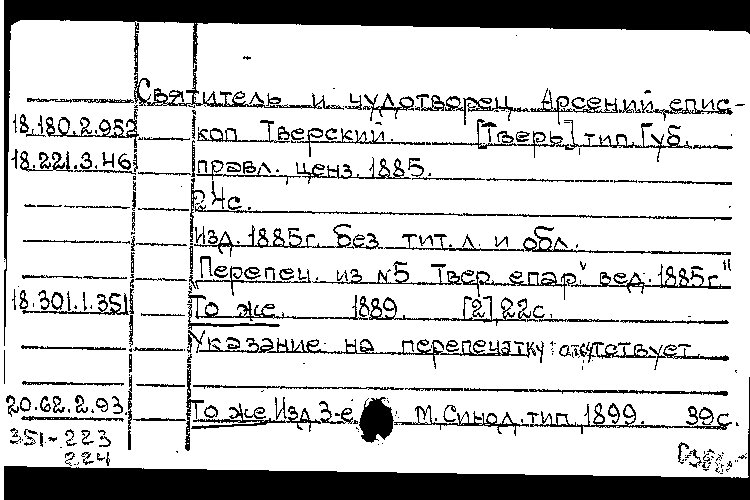 Святитель и чудотворец Арсений, епис-
18.180.2.952 коп Тверский. [Тверь] тип. Губ.
18.221.3.46 правл. ценз. 1885.
24с.
Изд. 1885г. без тит. л. и обл.
Перепеч. из №5 Твер. епар. вед. 1885г."
18.301.1.351 То же. 1889. [2] 22с.
Указание на перепечатку отсутствует
20.62.2.93. То же Изд. 3-е М. Синод. тип. 1899. 39с.
351-223
224